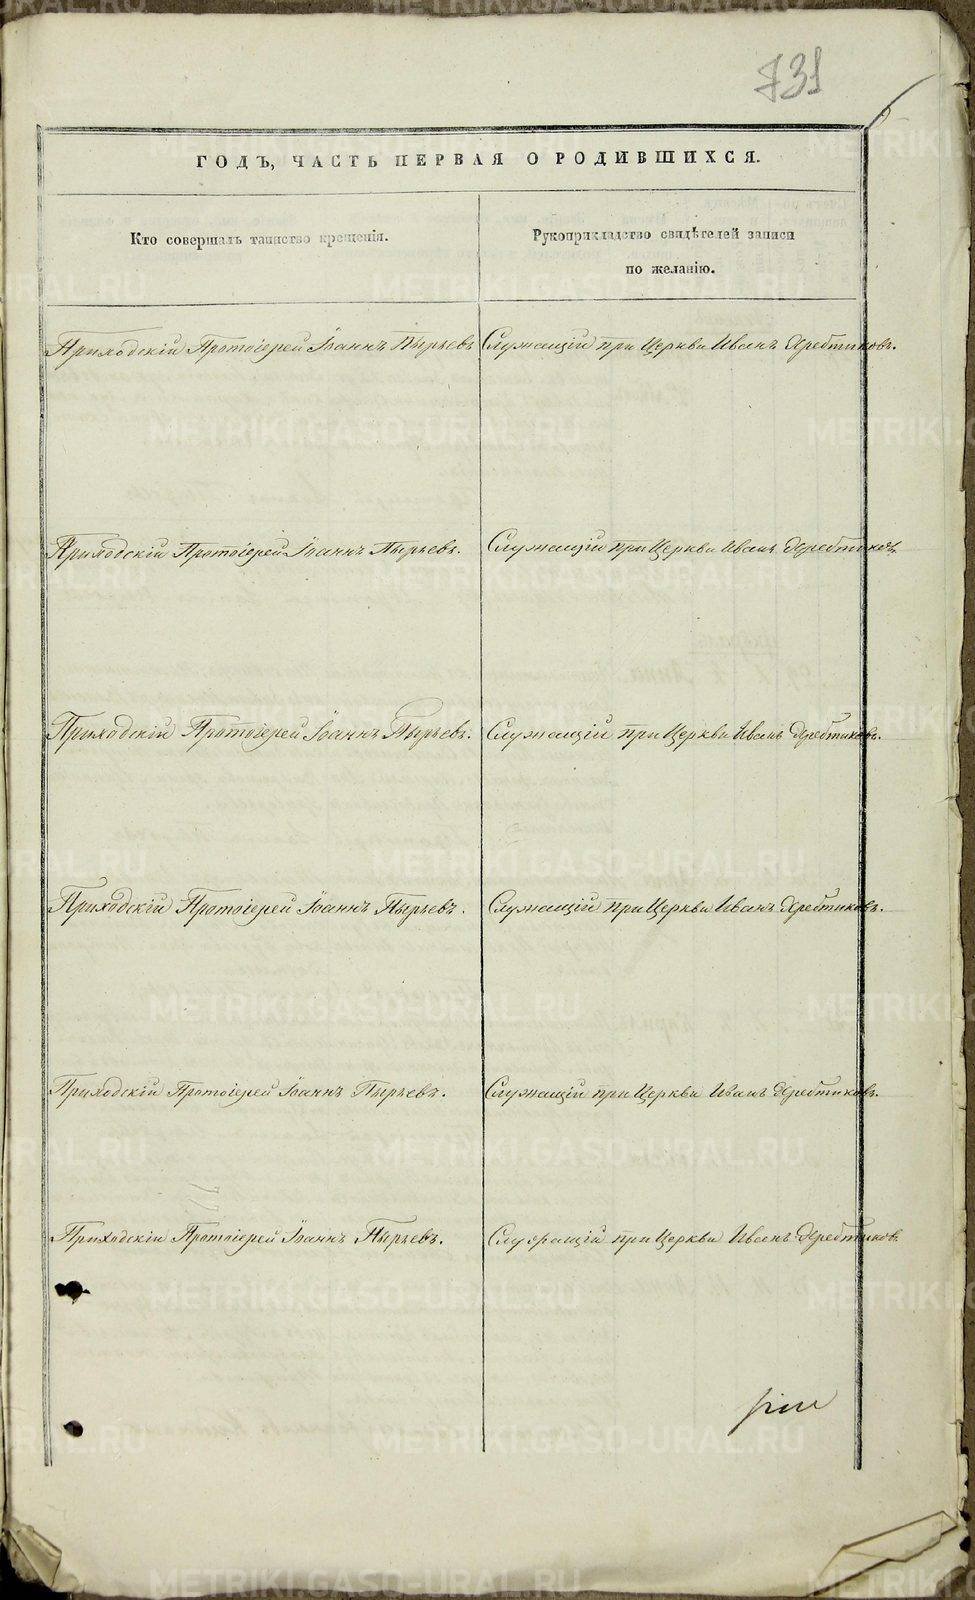 731
ГОДЪ, ЧАСТЬ ПЕРВАЯ О РОДИВШИХСЯ.
Кто совершалъ таинство крещенія.
Рукоприкладство свидѣтелей записи
по желанію.
Приходскій Протоіерей Іоаннъ Пырьевъ Служащій при Церкви Иванъ Хребтиковъ.
Приходскій Протоіерей Іоаннъ Пырьевъ. Служащій при Церкви Иванъ Хребтиковъ
Приходскій Протоіерей Іоаннъ Пырьевъ. Служащій при Церкви Иванъ Хребтиковъ.
Приходскій Протоіерей Іоаннъ Пырьевъ. Служащій при Церкви Иванъ Хребтиковъ.
Приходскій Протоіерей Іоаннъ Пырьевъ. Служащій при Церкви Иванъ Хребтиковъ.
Приходскій Протоіерей Іоаннъ Пырьевъ. Служащій при Церкви Иванъ Хребтиковъ.
METRIKI.GASO-URAL.RU